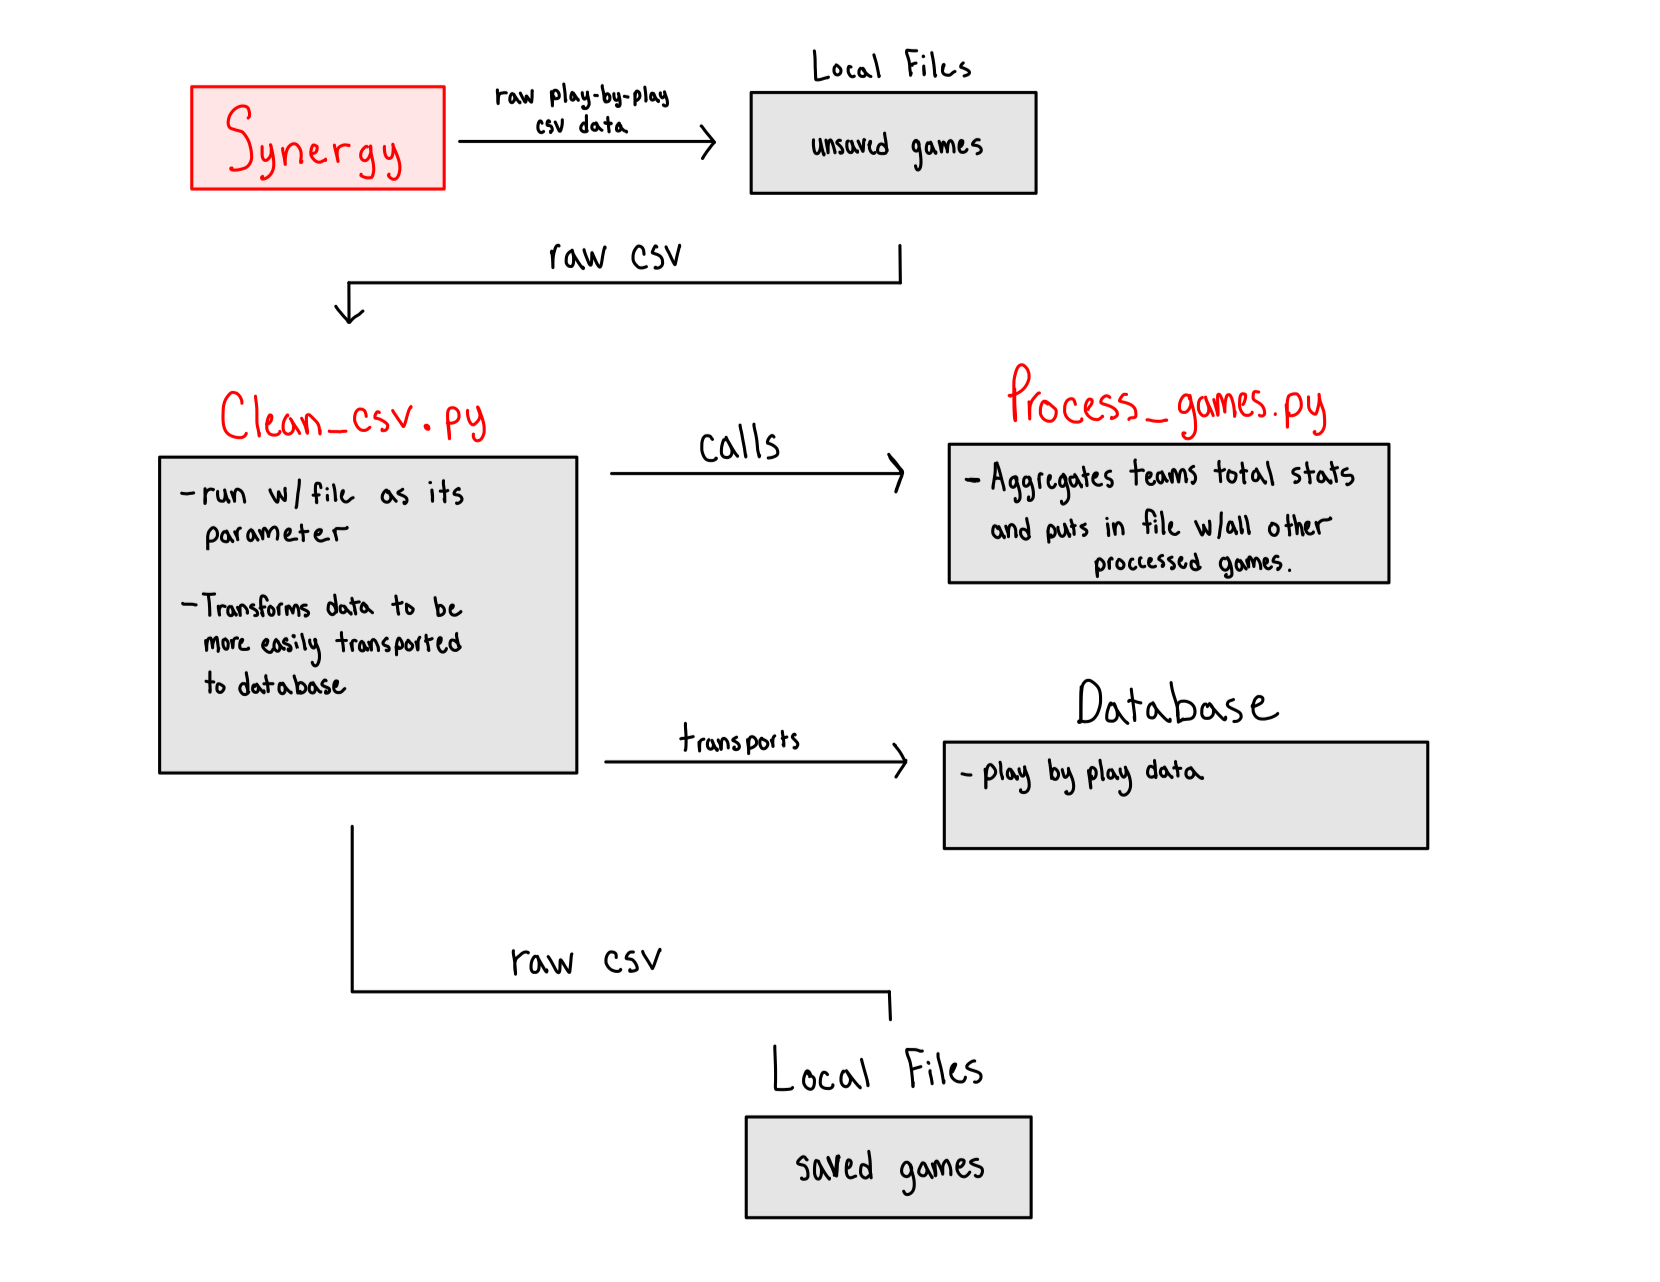 Local Files
Synergy
raw play-by-play
csv data
unsaved games
raw csv
Clean_csv.py
- run w/file as its
parameter
- Transforms data to be
more easily transported
to database
calls
Process_games.py
- Aggregates teams total stats
and puts in file w/all other
proccessed games.
transports
Database
- play by play data
raw csv
Local Files
saved games